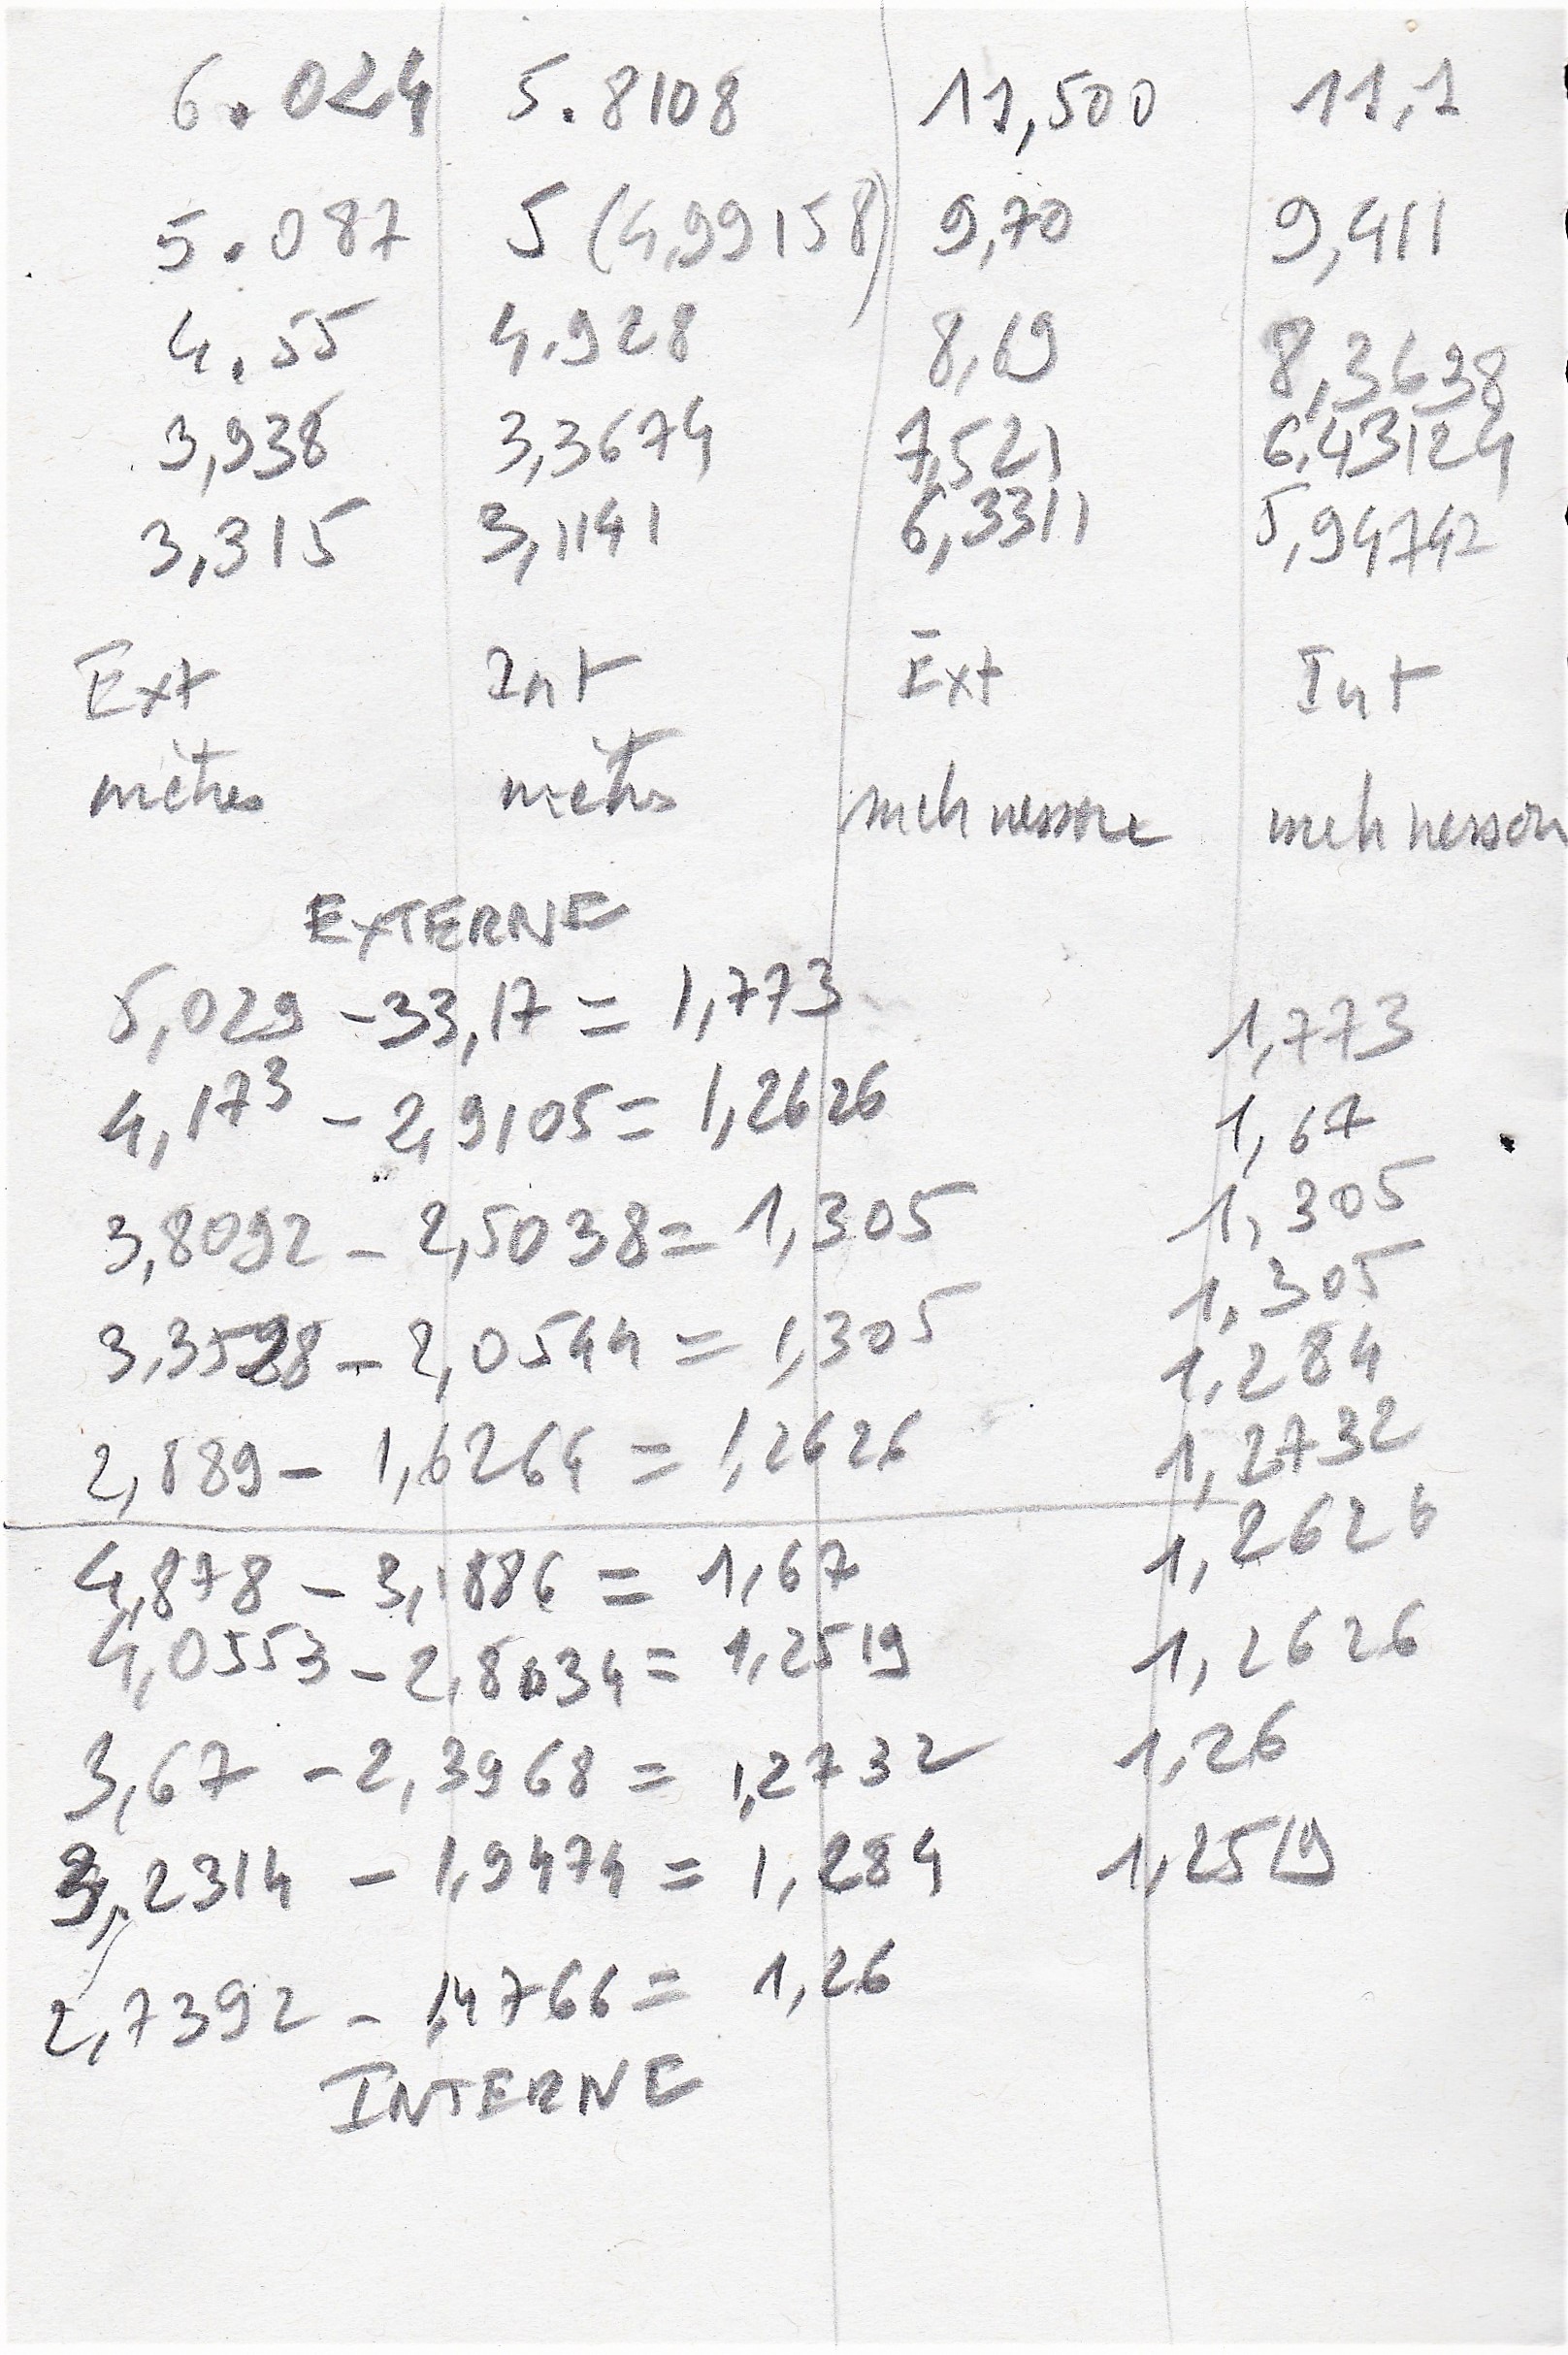 6.024 5.8108 11,500 11,1
5.087 5 (4,99158) 9,70 9,411
4.55 4.928 8,69 8,3638
3,938 3,3674 7,521 6,43124
3,315 3,1141 6,3311 5,94742
Ext Int Ext Int
mètres mètres
EXTERNE
5,029 - 33,17 = 1,773 1,773
4,173 - 2,9105 = 1,2626 1,67
3,8092 - 2,5038 = 1,305 1,305
3,3598 - 2,0544 = 1,305 1,305
2,889 - 1,6264 = 1,2626 1,284
1,2732
4,878 - 3,1886 = 1,67 1,2626
4,0553 - 2,8034 = 1,2519 1,2626
3,67 - 2,3968 = 1,2732 1,26
3,2314 - 1,9474 = 1,284 1,2519
2,7392 - 1,4766 = 1,26
INTERNE